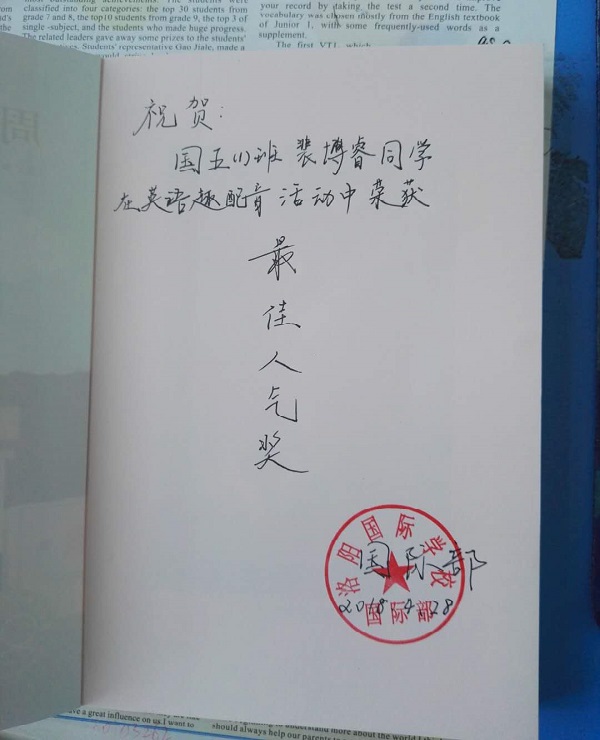 classified into four categories: the top 30 students from
grade 7 and 8, the top10 students from grade 9, the top 3 of
single -subject, and the students who made huge progress.
The related leaders gave away some prizes to the students'
Students' representative Gao Jiale, made a
your record by taking the test a second time. The
vocabulary was chosen mostly from the English textbook
of Junior 1, with some frequently-used words as a
supplement.
The first VT1, which
祝贺:
国五(1)班 裴博睿同学
在英语趣配音活动中荣获
最
佳
人
气
奖
洛阳国际学校
国际部
国际部
2018.4.28
have a great influence on us.I want to
understand more about the world I
should always help our parents